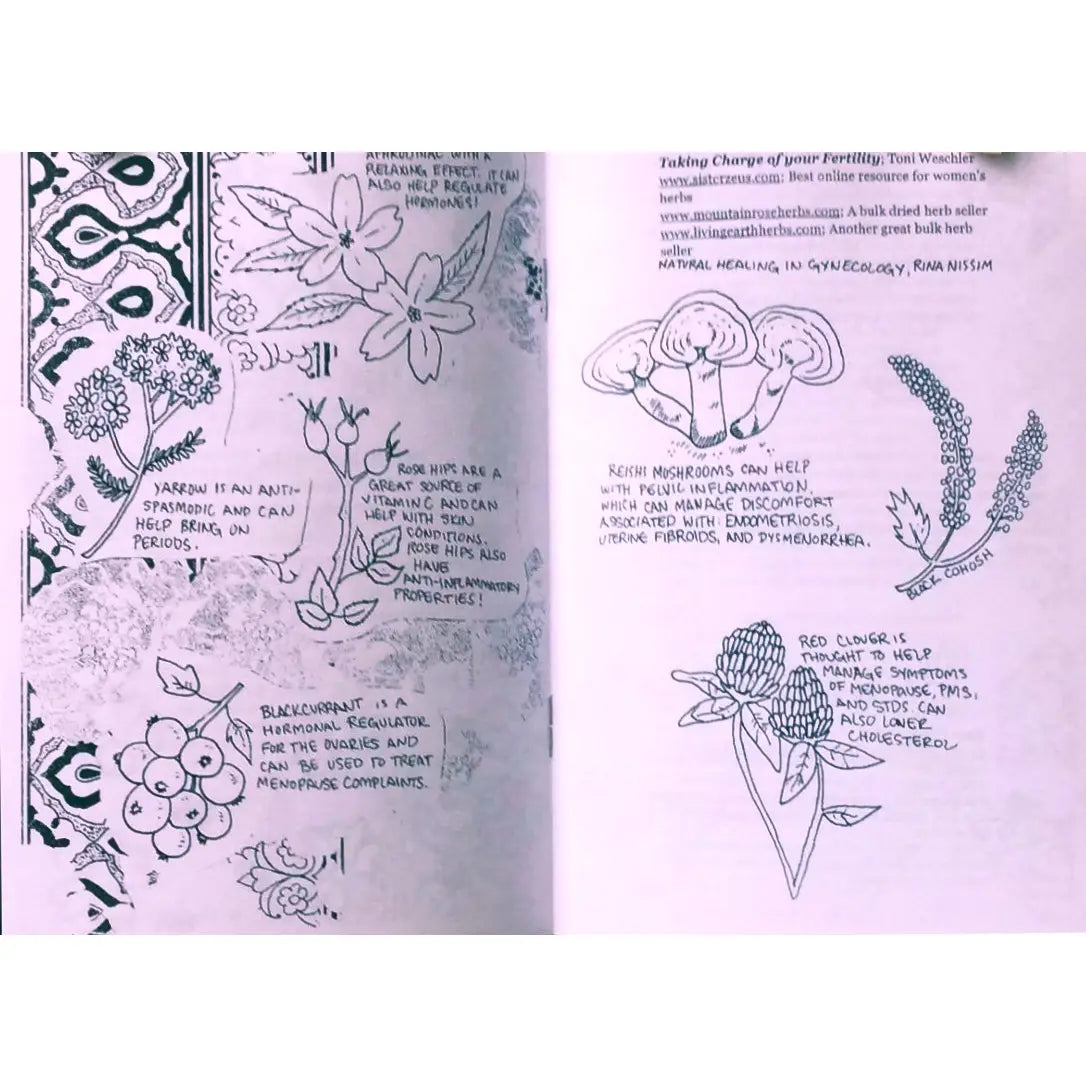 APHRODISIAC WITH A
RELAXING EFFECT. IT CAN
ALSO HELP REGULATE
HORMONES!
YARROW IS AN ANTI-
SPASMODIC AND CAN
HELP BRING ON
PERIODS.
ROSE HIPS ARE A
GREAT SOURCE OF
VITAMIN C AND CAN
HELP WITH SKIN
CONDITIONS.
ROSE HIPS ALSO
HAVE
ANTI-INFLAMMATORY
PROPERTIES!
BLACKCURRANT IS A
HORMONAL REGULATOR
FOR THE OVARIES AND
CAN BE USED TO TREAT
MENOPAUSE COMPLAINTS.
Taking Charge of your Fertility; Toni Weschler
www.sisterzeus.com: Best online resource for women's
herbs
www.mountainroseherbs.com: A bulk dried herb seller
www.livingearthherbs.com: Another great bulk herb
seller
NATURAL HEALING IN GYNECOLOGY, RINA NISSIM
REISHI MUSHROOMS CAN HELP
WITH PELVIC INFLAMMATION,
WHICH CAN MANAGE DISCOMFORT
ASSOCIATED WITH: ENDOMETRIOSIS,
UTERINE FIBROIDS, AND DYSMENORRHEA.
BLACK COHOSH
RED CLOVER IS
THOUGHT TO HELP
MANAGE SYMPTOMS
OF MENOPAUSE, PMS,
AND STDS. CAN
ALSO LOWER
CHOLESTEROL